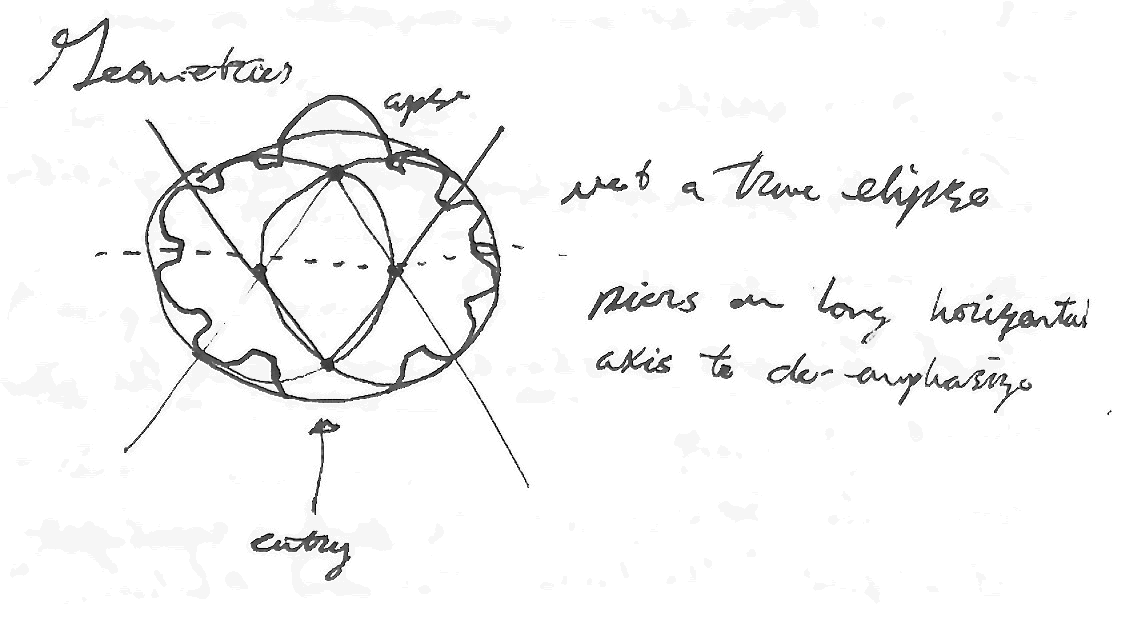 Geometries
apse
not a true elipse
piers on long horizontal
axis to de-emphasize
entry